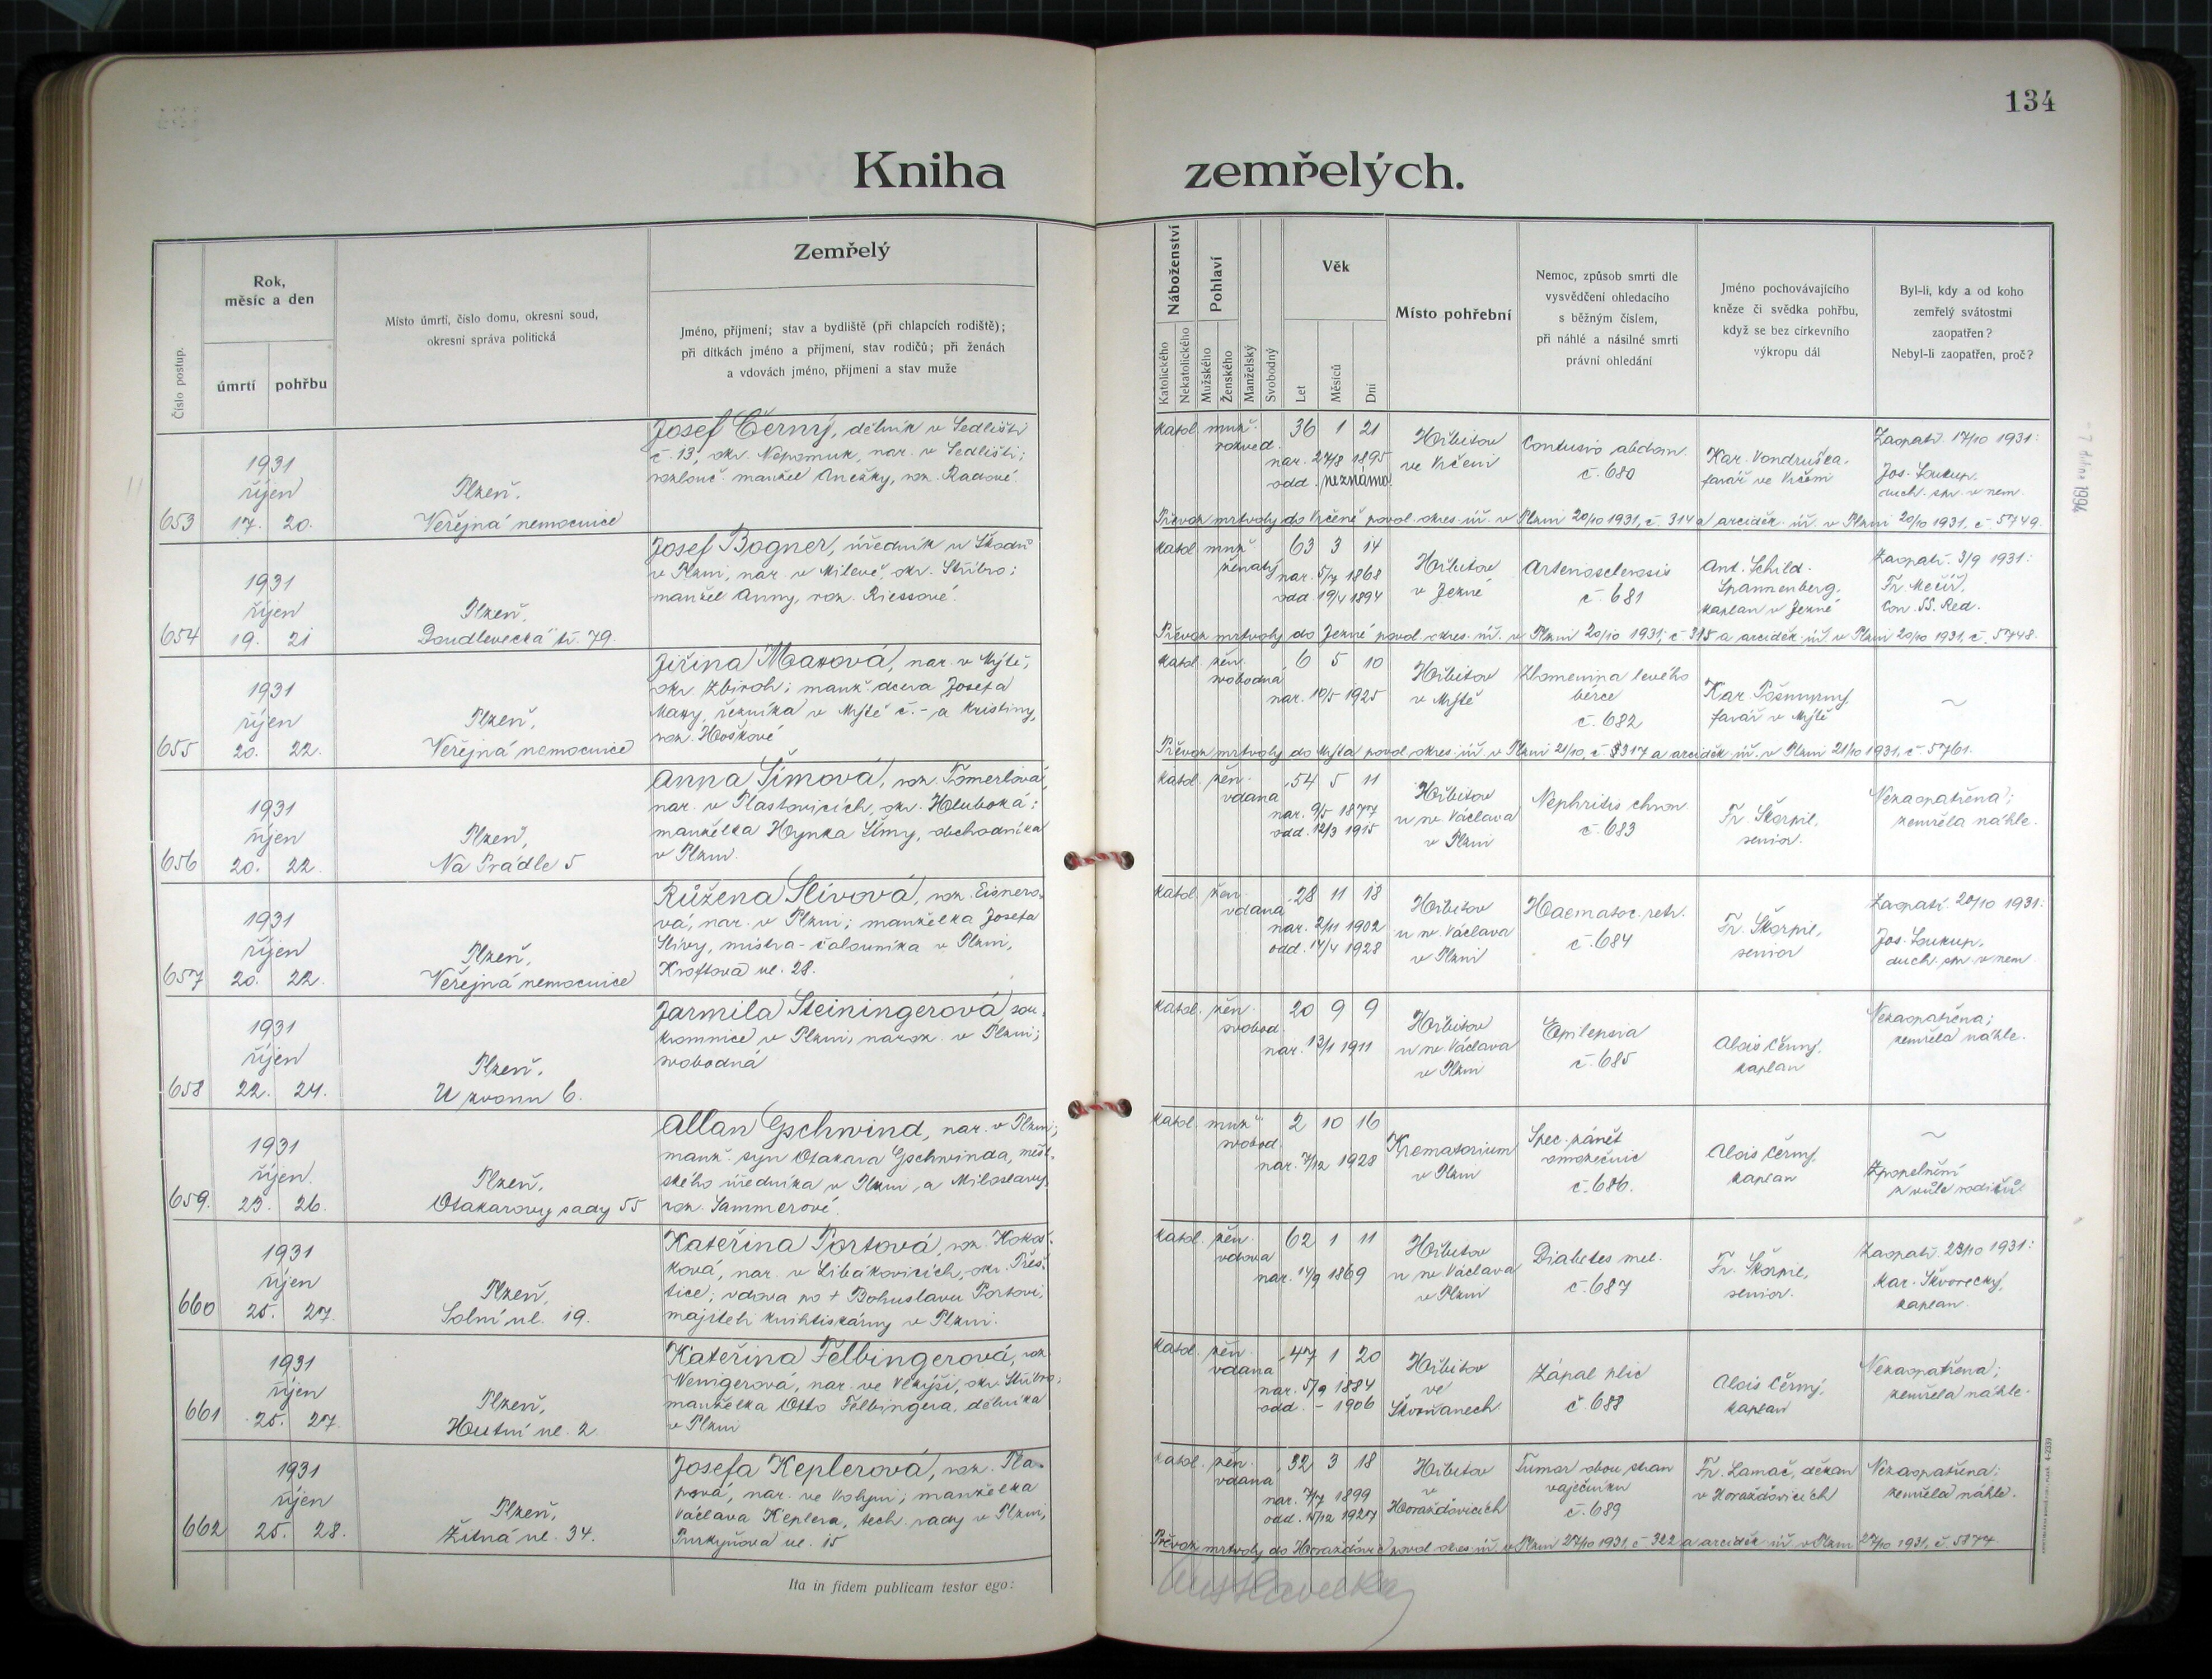 134
Kniha zemřelých.
Číslo postup.
Rok,
měsíc a den
úmrtí
pohřbu
Místo úmrtí, číslo domu, okresní soud,
okresní správa politická
Zemřelý
Jméno, příjmení; stav a bydliště (při chlapcích rodiště);
při dítkách jméno a příjmení, stav rodičů; při ženách
a vdovách jméno, příjmení a stav muže
Náboženství
Katolického
Nekatolického
Pohlaví
Mužského
Ženského
Manželský
Svobodný
Věk
Let
Měsíců
Dní
Místo pohřební
Nemoc, způsob smrti dle
vysvědčení ohledacího
s běžným číslem,
při náhlé a násilné smrti
právní ohledání
Jméno pochovávajícího
kněze či svědka pohřbu,
když se bez církevního
výkropu dál
Byl-li, kdy a od koho
zemřelý svátostmi
zaopatřen?
Nebyl-li zaopatřen, proč?
653
1931
říjen
17. 20.
Plzeň,
Veřejná nemocnice
Josef Černý, dělník v Sedlišti
č. 13, okr. Nepomuk, nar. v Sedlišti;
rozlouč. manžel Anežky, roz. Radové
katol. muž. 36 1 21
rozved.
nar. 27/8 1895
odd. neznámo.
Hřbitov
ve Vrčeni
Contusio abdom.
č. 680
Kar. Vondruška,
farář ve Vrčeni
Zaopatř. 17/10 1931:
Jos. Soukup,
duch. spr. v nem.
Převoz mrtvoly do Vrčeně povol. okres. úř. v Plzni 20/10 1931, č. 314 a arciděk. úř. v Plzni 20/10 1931, č. 5749.
654
1931
říjen
19. 21
Plzeň,
Doudlevecká tř. 79.
Josef Bogner, úředník u Škodů
v Plzni, nar. v Milevě, okr. Stříbro;
manžel Anny, roz. Riessové.
katol. muž. 63 3 14
ženatý
nar. 5/7 1868
odd. 19/4 1894
Hřbitov
v Jezné
Arteriosclerosis
č. 681
Ant. Schild-
Spannenberg,
kaplan v Jezné
Zaopatř. 3/9 1931:
Fr. Mečíř,
Con. SS. Red.
Převoz mrtvoly do Jezné povol. okres. úř. v Plzni 20/10 1931, č. 315 a arciděk. úř. v Plzni 20/10 1931, č. 5748.
655
1931
říjen
20. 22.
Plzeň,
Veřejná nemocnice
Jiřina Maxová, nar. v Mýtě,
okr. Zbiroh; manž. dcera Josefa
Maxy, řezníka v Mýtě č. - a Kristiny,
roz. Hoškové
katol. žen. 6 5 10
svobodná
nar. 10/5 1925
Hřbitov
v Mýtě
Zlomenina levého
bérce
č. 682
Kar. Pošmurný,
farář v Mýtě
~
Převoz mrtvoly do Mýta povol. okres. úř. v Plzni 21/10, č. 317 a arciděk. úř. v Plzni 21/10 1931, č. 5761.
656
1931
říjen
20. 22.
Plzeň,
Na Prádle 5
Anna Šímová, roz. Tomerlová,
nar. v Plastovicích, okr. Hluboká;
manželka Hynka Šímy, obchodníka
v Plzni.
katol. žen. 54 5 11
vdaná
nar. 9/5 1877
odd. 12/3 1915
Hřbitov
u sv. Václava
v Plzni
Nephritis chron.
č. 683
Fr. Škorpil,
senior.
Nezaopatřena;
zemřela náhle.
657
1931
říjen
20. 22.
Plzeň,
Veřejná nemocnice
Růžena Slívová, roz. Eisnero-
vá, nar. v Plzni; manželka Josefa
Slívy, mistra-čalouníka v Plzni,
Kroftova ul. 28.
katol. žen. 28 11 18
vdaná
nar. 2/11 1902
odd. 14/4 1928
Hřbitov
u sv. Václava
v Plzni
Haematoc. retr.
č. 684
Fr. Škorpil,
senior
Zaopatř. 20/10 1931:
Jos. Soukup,
duch. spr. v nem.
658
1931
říjen
22. 24.
Plzeň,
U zvonu 6.
Jarmila Steiningerová, sou-
kromnice v Plzni, naroz. v Plzni;
svobodná
katol. žen. 20 9 9
svobod.
nar. 13/1 1911
Hřbitov
u sv. Václava
v Plzni
Epilepsia
č. 685
Alois Černý,
kaplan
Nezaopatřena;
zemřela náhle.
659.
1931
říjen.
23. 26.
Plzeň,
Otakarovy sady 55
Allan Gschwind, nar. v Plzni;
manž. syn Otakara Gschwinda, měst-
ského úředníka v Plzni, a Miloslavy,
roz. Sammerové.
katol. muž. 2 10 16
svobod.
nar. 7/12 1928
Krematorium
v Plzni
Spec. zánět
omozečnic
č. 686.
Alois Černý,
kaplan
~
Zpopelnění
z vůle rodičů
660
1931
říjen
25. 27.
Plzeň,
Solní ul. 19.
Kateřina Portová, roz. Kokoš-
ková, nar. v Libákovicích, okr. Přeš-
tice; vdova po + Bohuslavu Portovi,
majiteli knihtiskárny v Plzni.
katol. žen. 62 1 11
vdova
nar. 14/9 1869
Hřbitov
u sv. Václava
v Plzni
Diabetes mel.
č. 687
Fr. Škorpil,
senior.
Zaopatř. 23/10 1931:
Kar. Škvorecký,
kaplan.
661
1931
říjen
25. 27.
Plzeň,
Hutní ul. 2.
Kateřina Felbingerová, roz.
Wenigerová, nar. ve Vlkýši, okr. Stříbro;
manželka Otto Felbingera, dělníka
v Plzni
katol. žen. 47 1 20
vdaná
nar. 5/9 1884
odd. - 1906
Hřbitov
ve
Skvrňanech.
Zápal plic
č. 688
Alois Černý,
kaplan
Nezaopatřena;
zemřela náhle.
662
1931
říjen
25. 28.
Plzeň,
Žitná ul. 34.
Josefa Keplerová, roz.
nar. ve Volyni; manželka
Václava Keplera, tech. rady v Plzni,
Purkyňova ul. 15
katol. žen. 32 3 18
vdaná
nar. 7/7 1899
odd. 1927
Hřbitov
v
Horažďovicích
Tumor obou stran
vaječníku
č. 689
Fr. Lamač, děkan
v Horažďovicích
Nezaopatřena;
zemřela náhle.
Převoz mrtvoly do Horažďovic povol. okres. úř. v Plzni 27/10 1931, č. 322 a arciděk. úř. v Plzni 27/10 1931, č. 5874
Ita in fidem publicam testor ego: